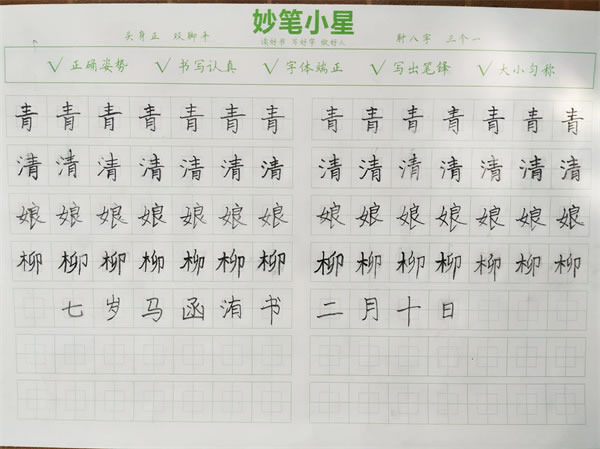 妙笔小星
头身正 双脚平 读好书 写好字 做好人 肘八字 三个一
√ 正确姿势 √ 书写认真 √ 字体端正 √ 写出笔锋 √ 大小匀称
青 青 青 青 青 青 青 青 青 青 青 青 青 青
清 清 清 清 清 清 清 清 清 清 清 清 清 清
娘 娘 娘 娘 娘 娘 娘 娘 娘 娘 娘 娘 娘 娘
柳 柳 柳 柳 柳 柳 柳 柳 柳 柳 柳 柳 柳 柳
七 岁 马 函 洧 书 二 月 十 日